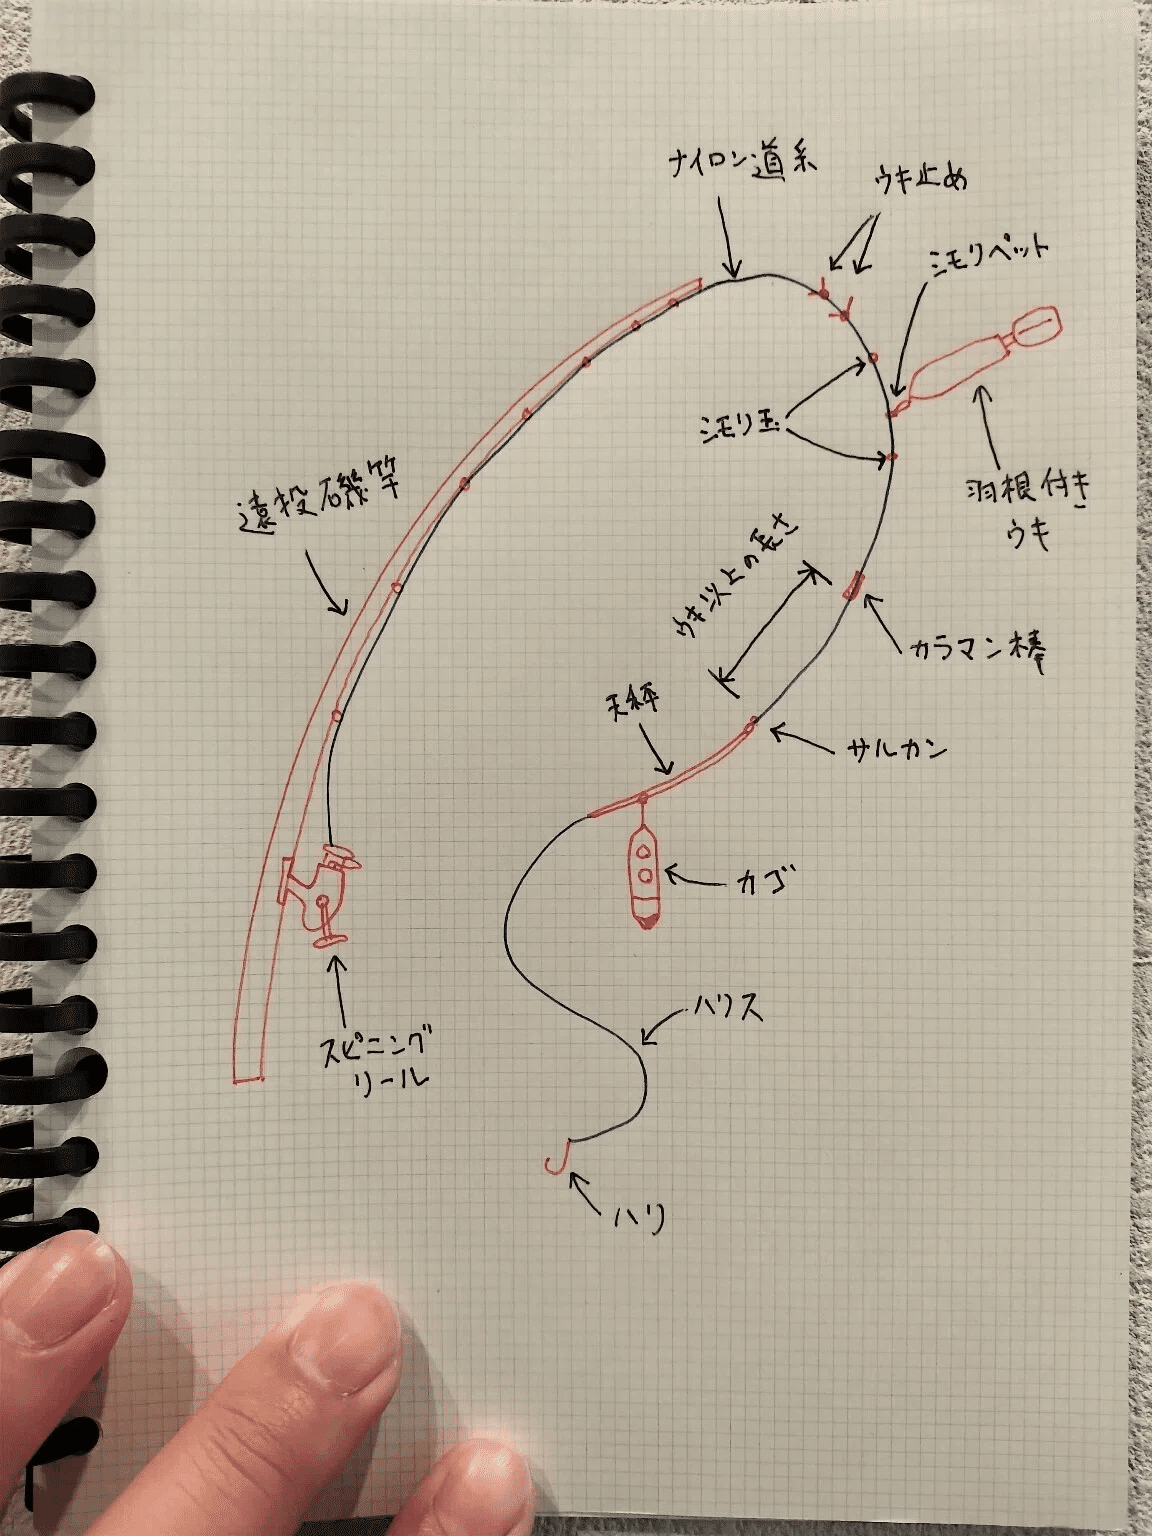 ナイロン道糸
ウキ止め
シモリペット
シモリ玉
遠投磯竿
羽根付き
ウキ
ウキ以上の長さ
カラマン棒
天秤
サルカン
カゴ
ハリス
スピニング
リール
ハリ